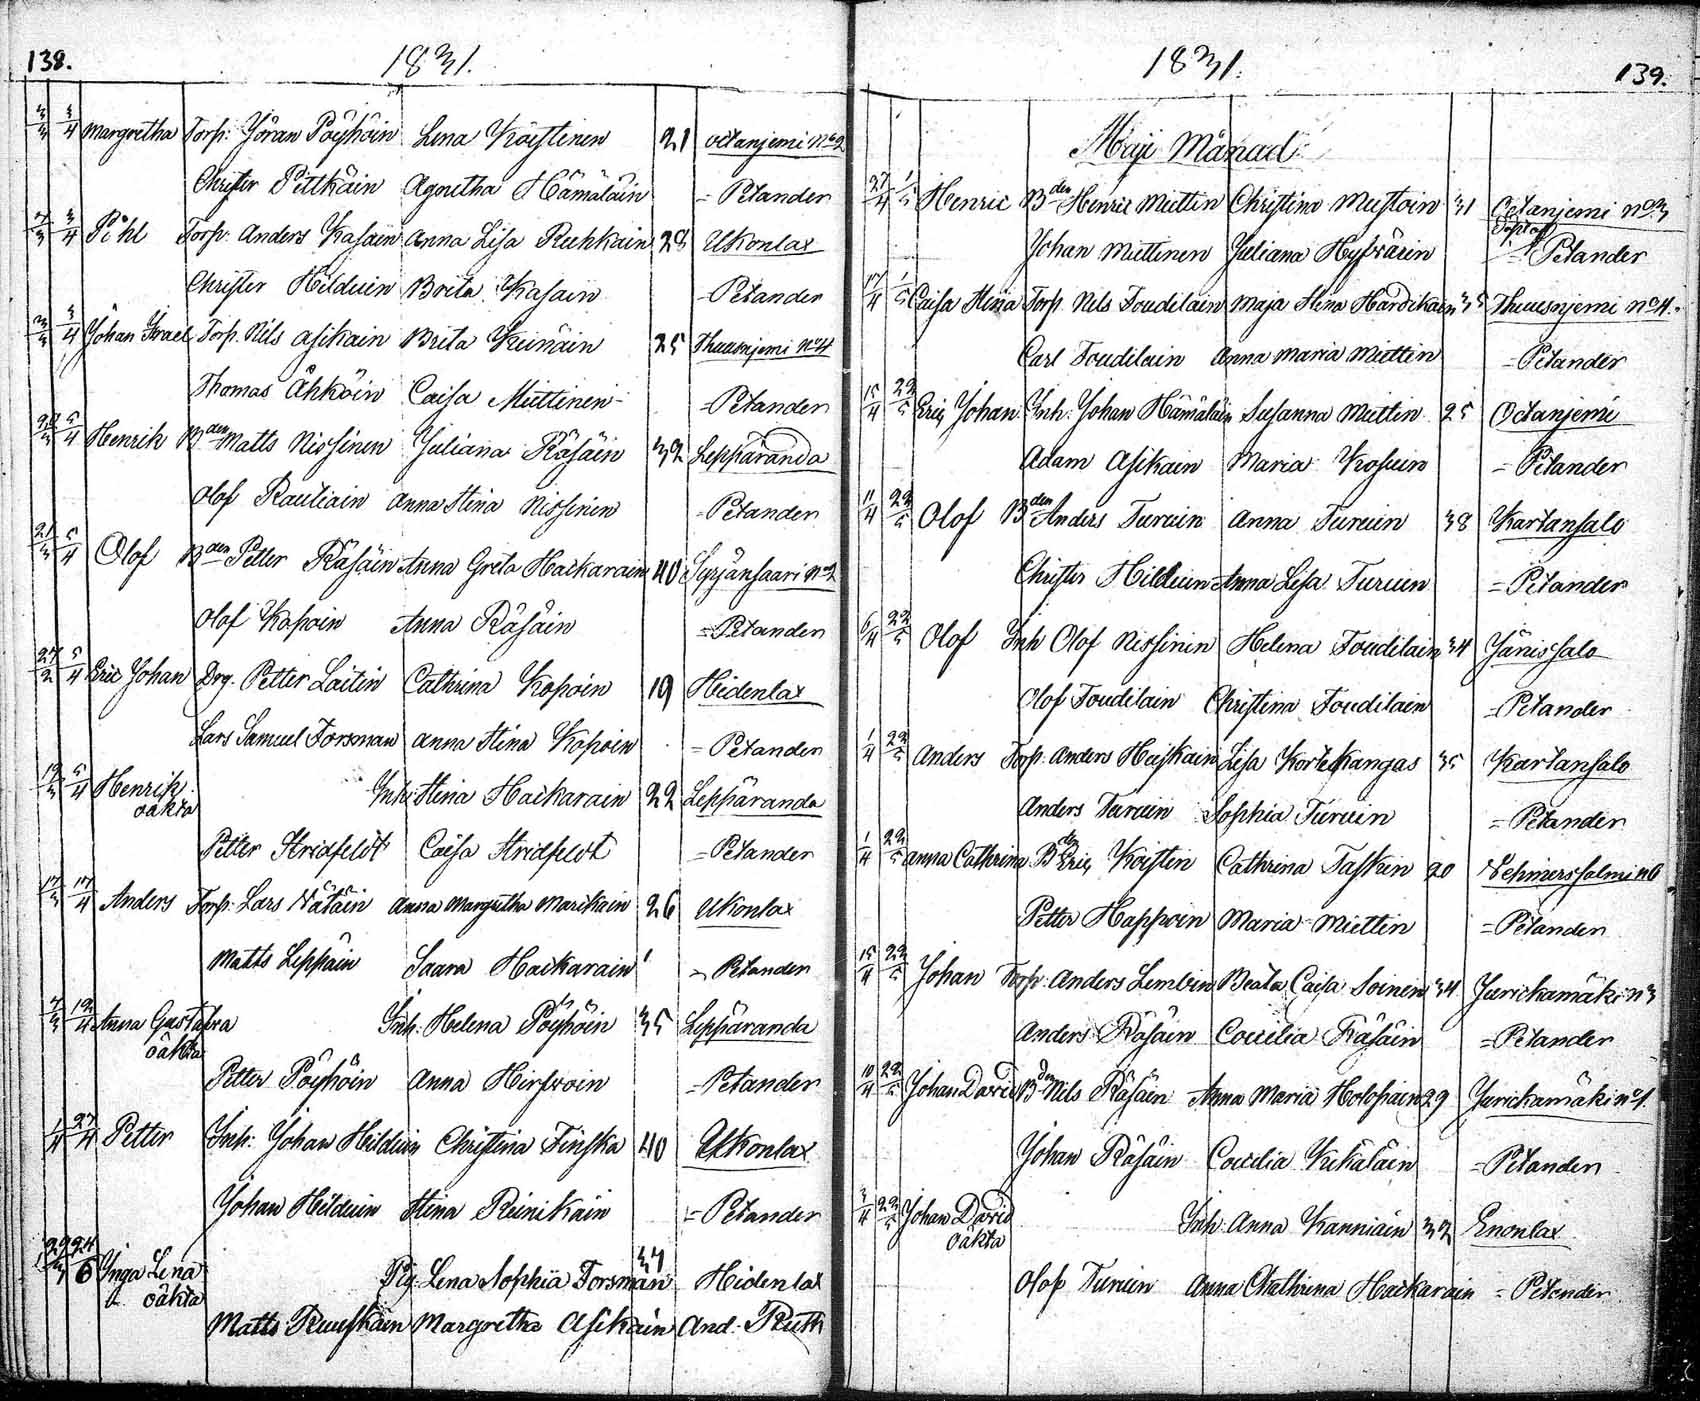 138.
1831.
3/3 3/4 Margretha Torp: Jöran Pöyhöin Lena Köistinen 21 Oetanjemi No 2
Christer Pitkäin Agnetha Hämäläin = Petander
7/3 3/4 Pehl Torp: Anders Kasain Anna Lisa Ruhkain 28 Ukonlax
Christer Hilduin Brita Kasain = Petander
3/4 Johan Israel Torp. Nils Asikain Brita Keinäin 25 Thuusnjemi No 4
Thomas Ähköin Caisa Miettinen = Petander
5/4 Henrik Bden Matts Nissinen Juliana Räsäin 32 Lepparanda
Olof Rautiain Anna Stina Nissinen = Petander
21/3 5/4 Olof Bden Petter Räsäin Anna Greta Hackarain 40 Syrjänsaari No 2
Olof Kopoin Anna Räsäin = Petander
5/4 Eric Johan Drg. Petter Laitin Cathrina Kopoin 19 Heidenlax
Lars Samuel Forsman Anna Stina Kopoin = Petander
19/3 5/4 Henrik oäkta Inh: Stina Hackarain 22 Lepparanda
Petter Stridfeldt Caisa Stridfeldt = Petander
17/3 17/4 Anders Torp: Lars Wätäin Anna Margretha Marikain 26 Ukonlax
Matts Leppäin Saara Hackarain = Petander
19/4 Anna Gustafva oäkta Inh: Helena Pöyhöin 35 Lepparanda
Petter Pöyhöin Anna Hirfvoin = Petander
1/4 27/4 Petter Inh: Johan Hilduin Christina Finska 40 Ukonlax
Johan Hilduin Stina Reinikain = Petander
Inga Lena oäkta Pig. Lena Sophia Forsman 37 Heidenlax
Matts Ruuskain Margretha Asikain And. Ruth
1831.
139.
Maji Månad:
27/4 1/5 Henric Bden Henric Miettin Christina Mustoin 31 Oetanjemi No 3
Johan Miettinen Juliana Hyfväin = Petander
17/4 1/5 Caisa Stina Torp. Nils Toudilain Maja Stina Hardikain 35 Thuusnjemi No 4.
Carl Toudilain Anna Maria Miettin = Petander
15/4 22/5 Eriç Johan Inh: Johan Hämäläin Susanna Miettin 25 Oetanjemi
Adam Asikain Maria Kosuin = Petander
11/4 22/5 Olof Bden Anders Turuin Anna Turuin 38 Kartansalo
Christer Hilduin Anna Lisa Turuin = Petander
6/4 22/5 Olof Inh Olof Nissinen Helena Toudilain 34 Jänissalo
Olof Toudilain Christina Toudilain = Petander
1/4 22/5 Anders Torp: Anders Haskain Lisa Kortekangas 35 Kartansalo
Anders Turuin Sophia Turuin = Petander
1/4 22/5 Anna Cathrina Bden Eriç Köistin Cathrina Taskin 20 Vehmersalmi n6
Petter Happoin Maria Miettin = Petander
15/4 22/5 Johan Torp: Anders Lembin Beata Caisa Soinen 34 Jurickamäki n3
Anders Räsäin Cecilia Räsäin = Petander
10/4 22/5 Johan David Bden Nils Räsäin Anna Maria Holopain 29 Jurickamäki No 1.
Johan Räsäin Cecilia Kekäläin = Petander
3/4 22/5 Johan David oäkta Inh: Anna Kanniain 32 Enonlax
Olof Turuin Anna Chathrina Hackarain = Petander